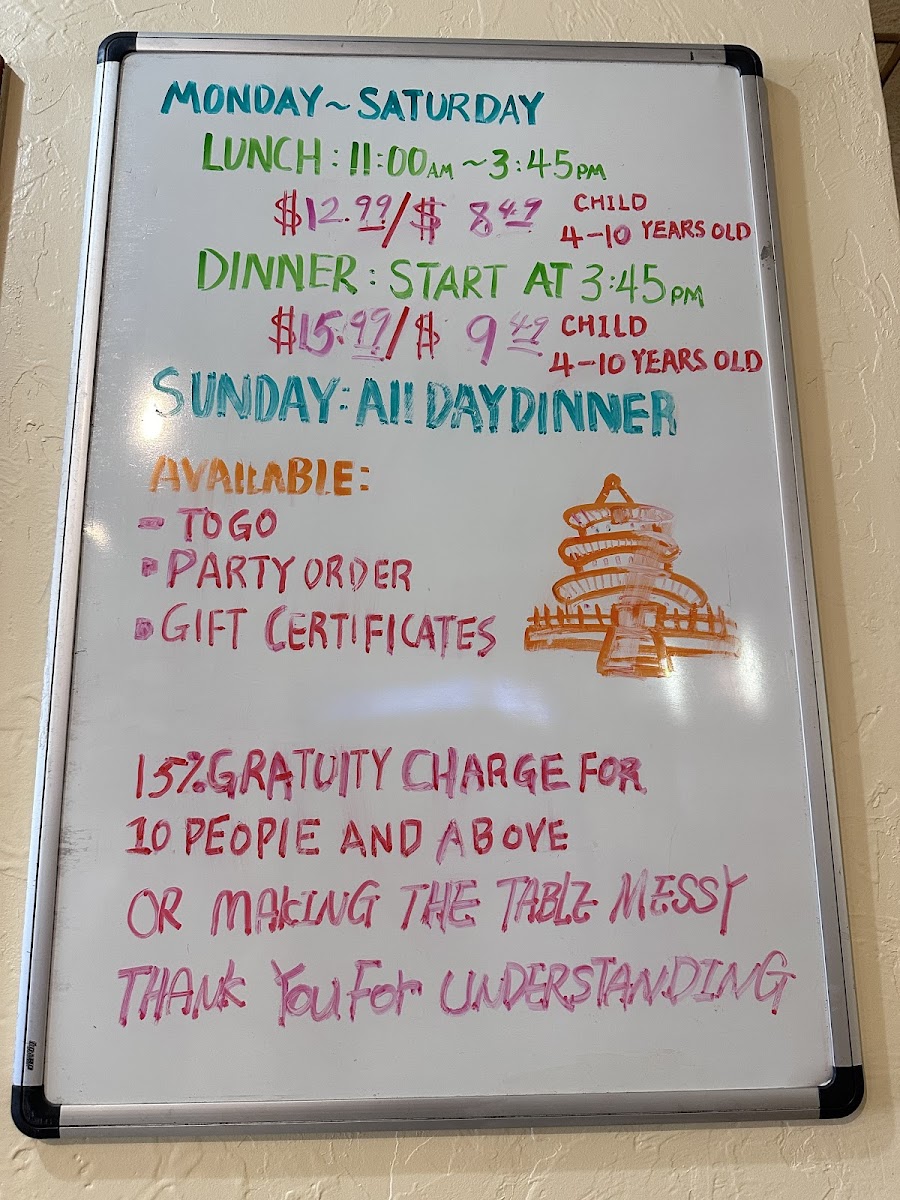 MONDAY~SATURDAY
LUNCH: 11:00AM ~3:45PM
$12.99/$ 8.49 CHILD
4-10 YEARS OLD
DINNER: START AT 3:45PM
$15.99/$ 9.49 CHILD
4-10 YEARS OLD
SUNDAY: All DAY DINNER
AVAILABLE:
- TO GO
▪ PARTY ORDER
▪ GIFT CERTIFICATES
15% GRATUITY CHARGE FOR
10 PEOPLE AND ABOVE
OR MAKING THE TABLE MESSY
THANK YOU FOR UNDERSTANDING